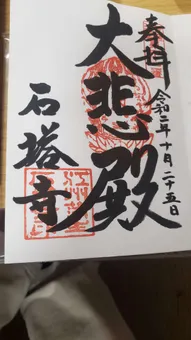 奉拝
令和二年十月二十五日
大悲殿
石塔寺